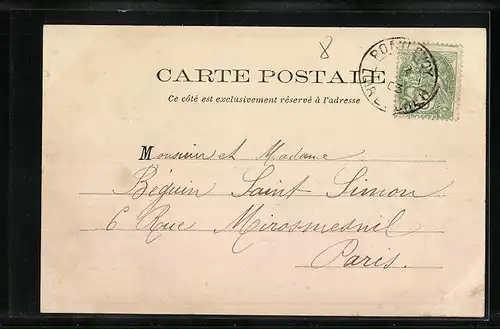 8
CARTE POSTALE
Ce côté est exclusivement réservé à l'adresse
Monsieur et Madame
Béguin Saint Simon
6 Rue Miromesnil
Paris.